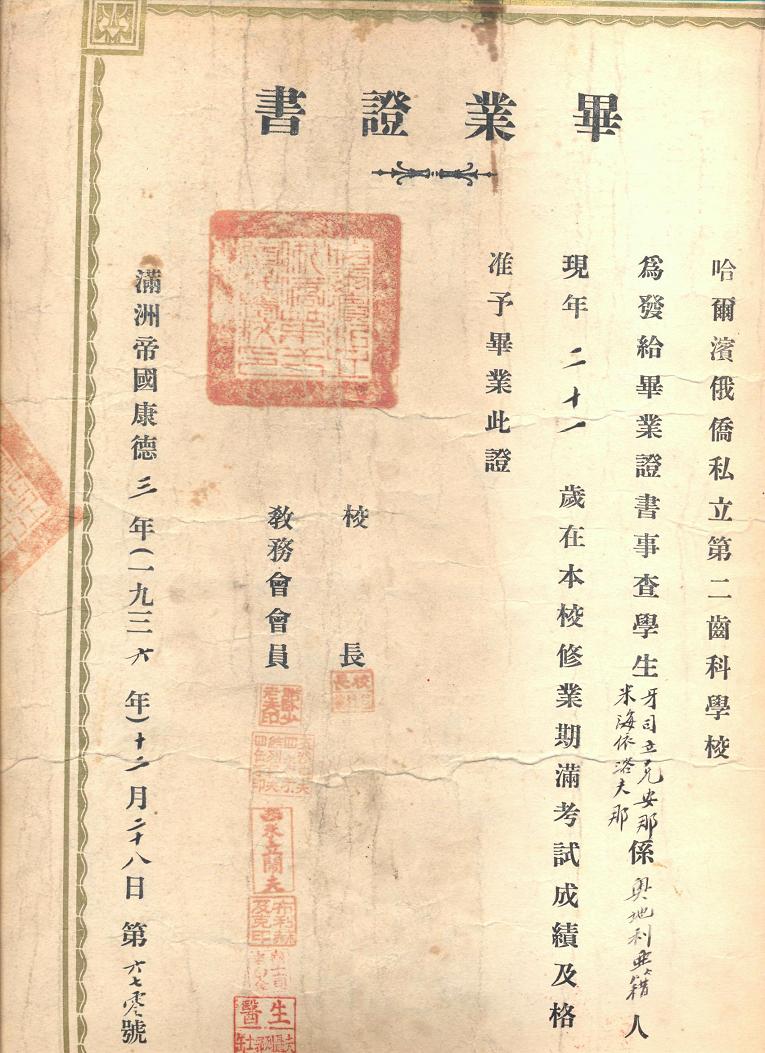 畢業證書
哈爾濱俄僑私立第二齒科學校
為發給畢業證書事查學生牙司立克安那
米海依洛夫那係奧地利亜籍人
現年二十一歲在本校修業期滿考試成績及格
准予畢業此證
校長
校長
教務會會員
永立開夫
布利赫
及克印
醫生
滿洲帝國康德三年(一九三六年)十二月二十八日第六七零號